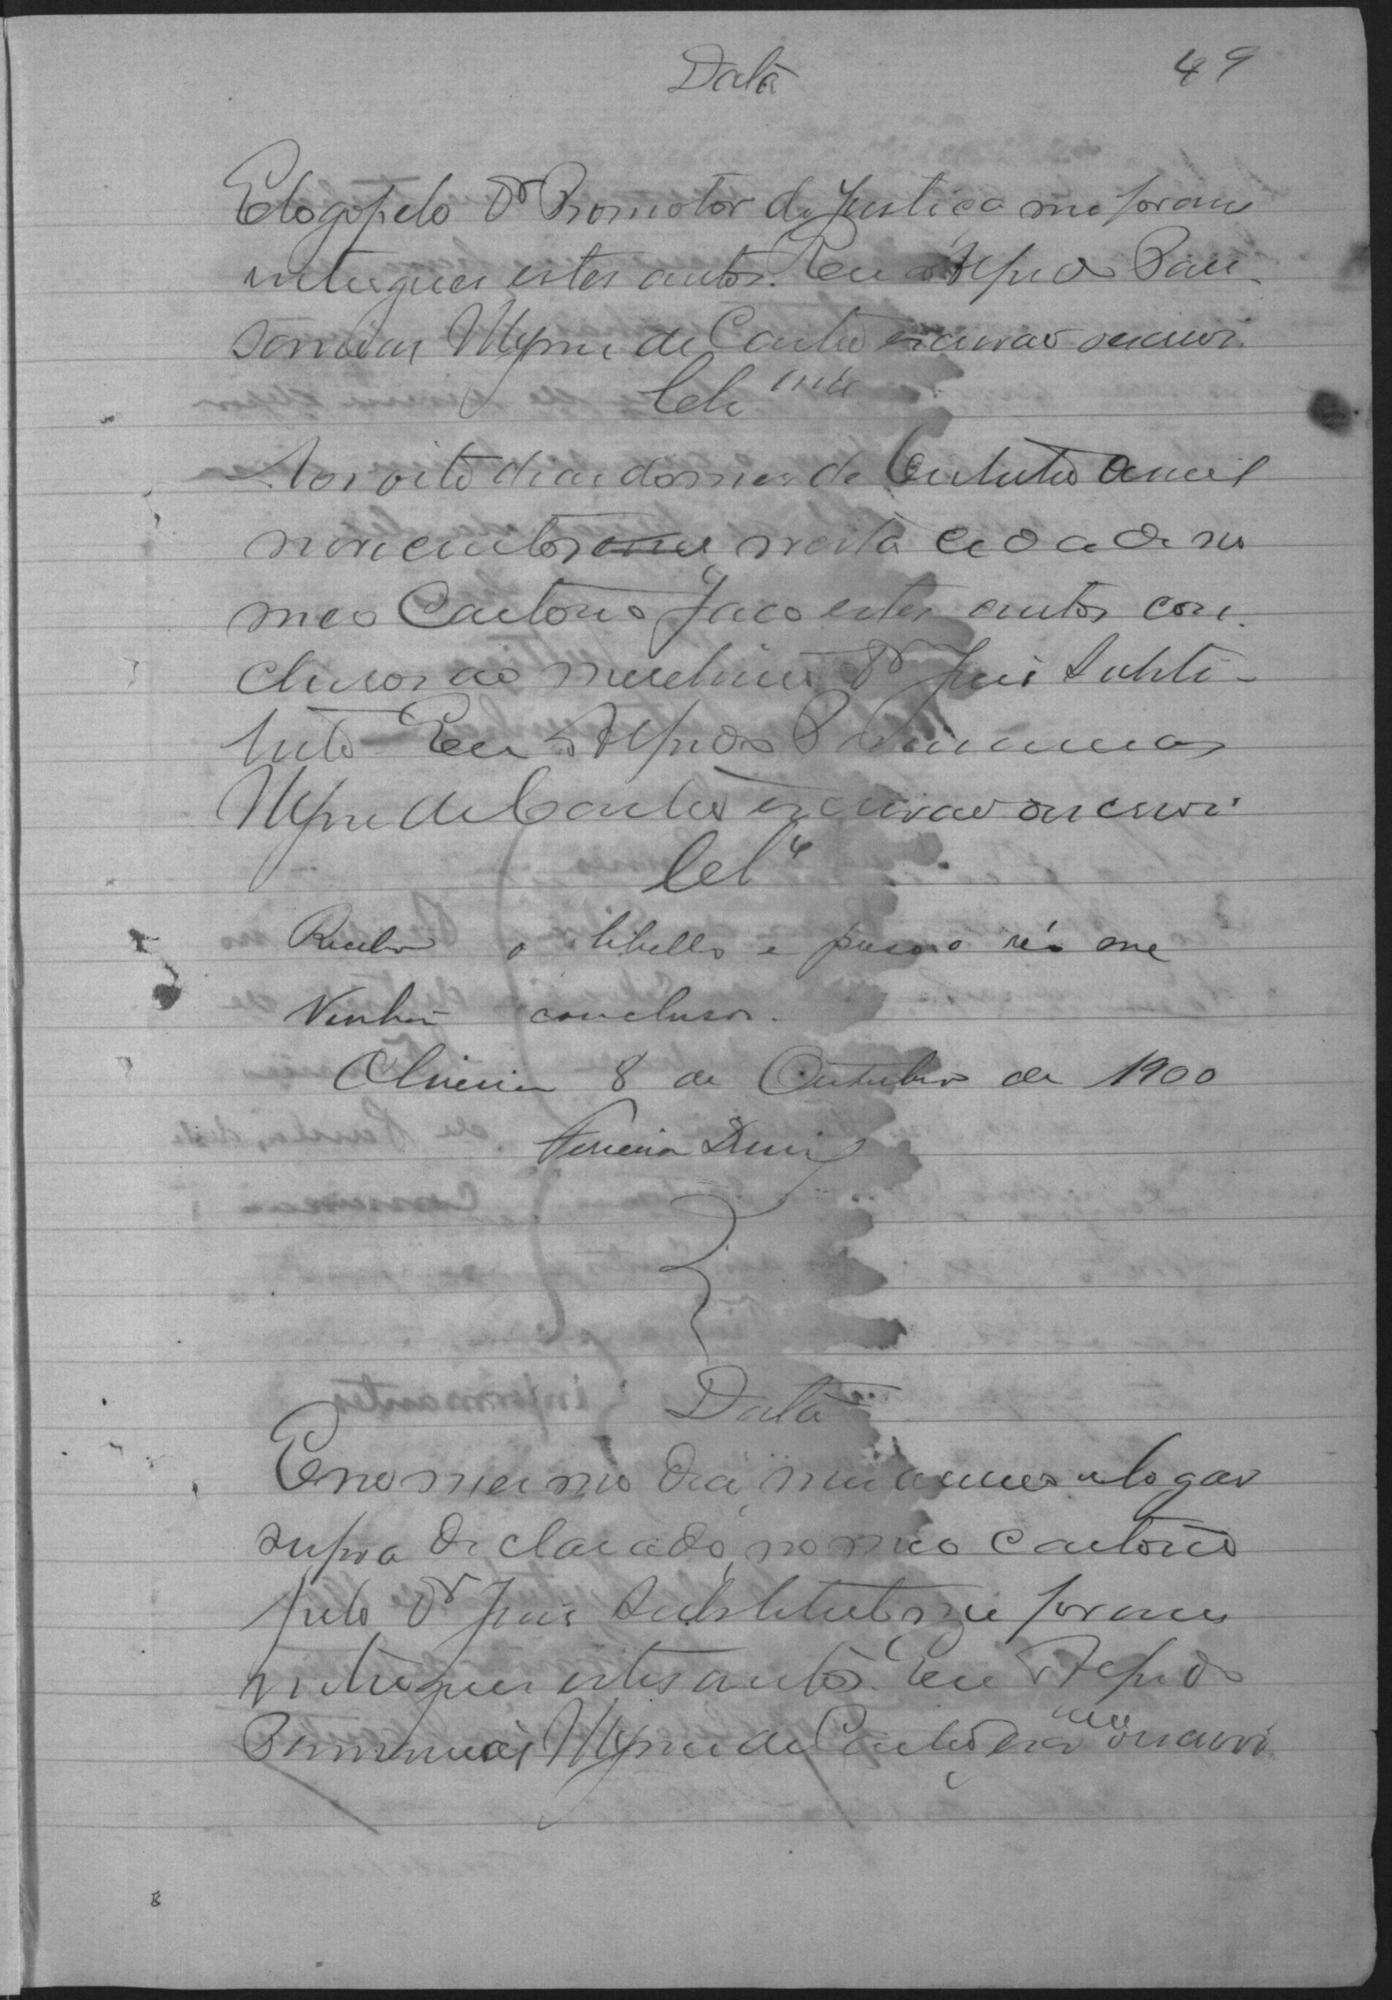 Data
49
E logo pelo Dr Promotor de Justiça me foram
entregues estes autos. Eu Alfredo
de Castro escrivão o escrevi
Aos oito dias do mes de Outubro de mil
novecentos nesta cidade no
meo Cartorio faço estes autos con-
clusos ao meritissimo Dr Juis Substi-
tuto Eu Alfredo
de Castro escrivão o escrevi
Cls
Recebo o libello e preso o réo me
Venhão conclusos.
Oliveira 8 de Outubro de 1900
Ferreira Diniz
Data
E no mesmo dia, mes anno e logar
supra declarado, no meo cartorio
pelo Dr Juis Substituto me foram
entregues estes autos. Eu Alfredo
de Castro o escrevi
8